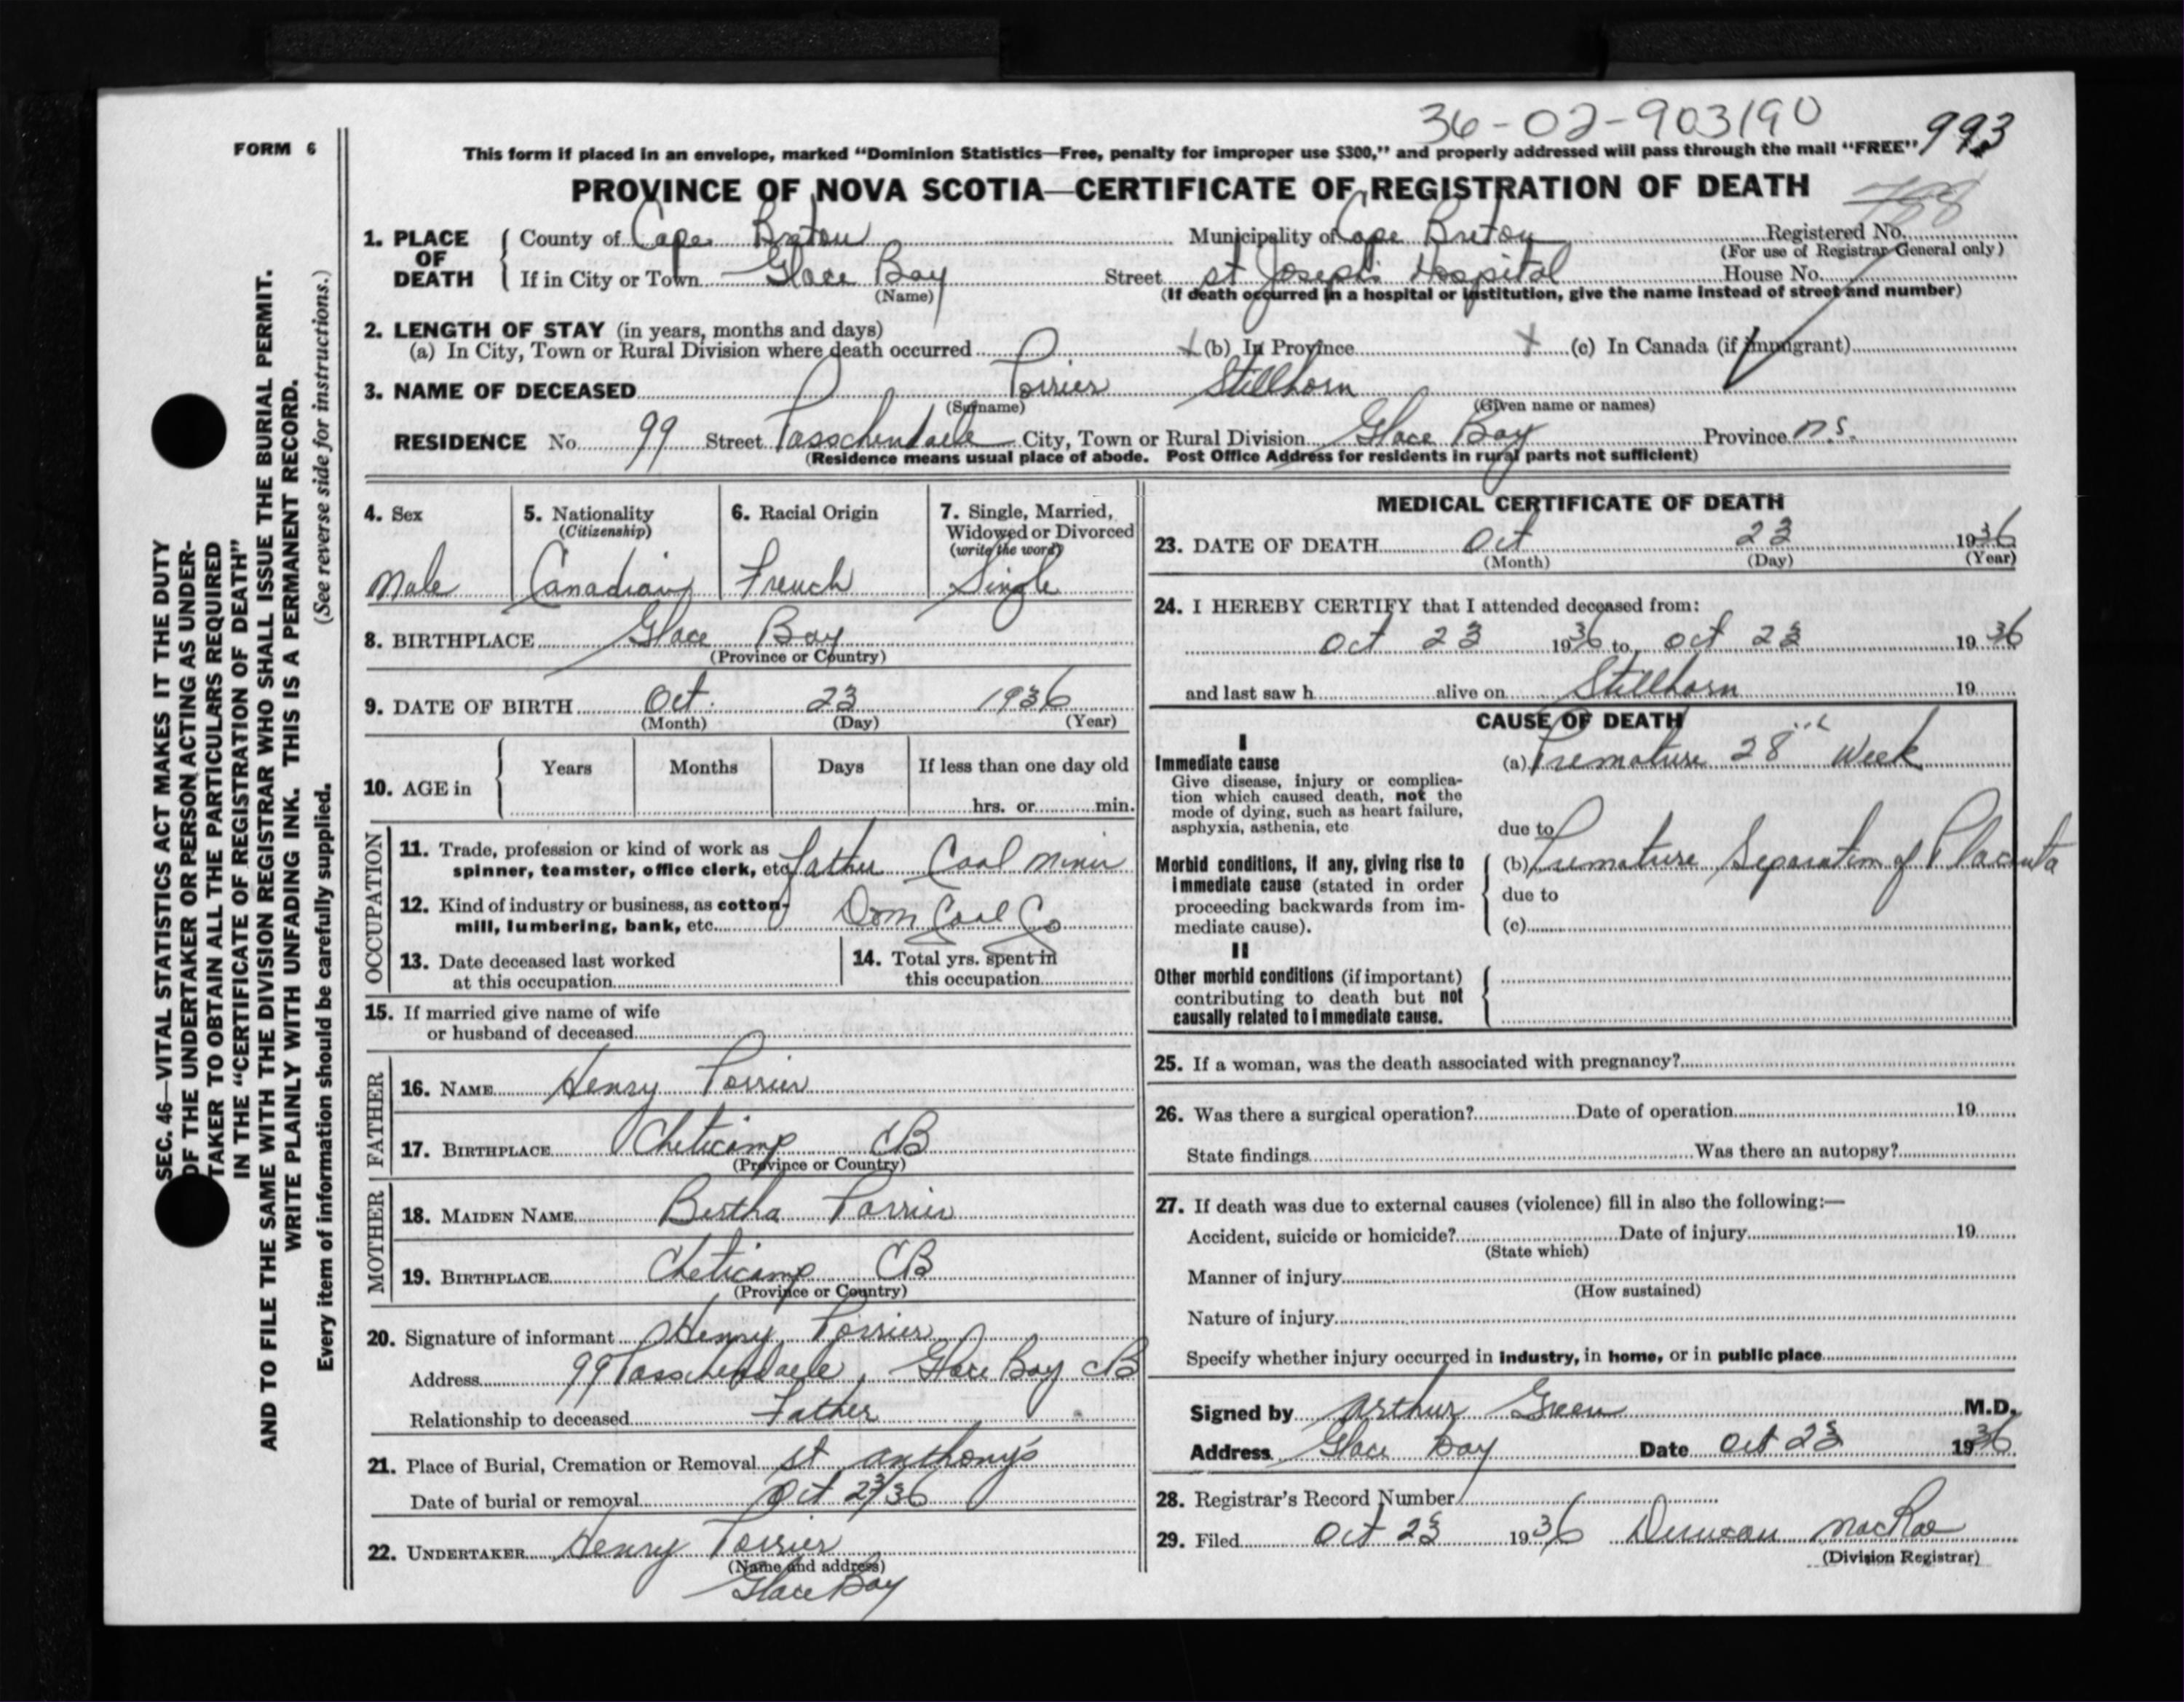 36-02-903190
FORM 6
This form if placed in an envelope, marked “Dominion Statistics—Free, penalty for improper use $300,” and properly addressed will pass through the mail “FREE” 993
PROVINCE OF NOVA SCOTIA—CERTIFICATE OF REGISTRATION OF DEATH
788
1. PLACE OF DEATH { County of Cape Breton Municipality of Cape Breton Registered No.
(For use of Registrar General only)
If in City or Town Glace Bay Street St Joseph's Hospital House No.
(Name) (If death occurred in a hospital or institution, give the name instead of street and number)
2. LENGTH OF STAY (in years, months and days)
(a) In City, Town or Rural Division where death occurred x (b) In Province x (c) In Canada (if immigrant)
3. NAME OF DECEASED Poirier Stillborn
(Surname) (Given name or names)
RESIDENCE No. 99 Street Passchendaele City, Town or Rural Division Glace Bay Province N.S.
(Residence means usual place of abode. Post Office Address for residents in rural parts not sufficient)
4. Sex Male
5. Nationality (Citizenship) Canadian
6. Racial Origin French
7. Single, Married, Widowed or Divorced (write the word) Single
8. BIRTHPLACE Glace Bay
(Province or Country)
9. DATE OF BIRTH Oct. 23 1936
(Month) (Day) (Year)
10. AGE in { Years Months Days If less than one day old
hrs. or min.
OCCUPATION
11. Trade, profession or kind of work as
spinner, teamster, office clerk, etc. Father Coal Miner
12. Kind of industry or business, as cotton-
mill, lumbering, bank, etc. Dom Coal Co
13. Date deceased last worked
at this occupation
14. Total yrs. spent in
this occupation
15. If married give name of wife
or husband of deceased
FATHER
16. NAME Henry Poirier
17. BIRTHPLACE Cheticamp CB
(Province or Country)
MOTHER
18. MAIDEN NAME Bertha Poirier
19. BIRTHPLACE Cheticamp CB
(Province or Country)
20. Signature of informant Henry Poirier
Address 99 Passchendaele, Glace Bay CB
Relationship to deceased Father
21. Place of Burial, Cremation or Removal St Anthony's
Date of burial or removal Oct 23/36
22. UNDERTAKER Henry Poirier
(Name and address)
Glace Bay
MEDICAL CERTIFICATE OF DEATH
23. DATE OF DEATH Oct 23 1936
(Month) (Day) (Year)
24. I HEREBY CERTIFY that I attended deceased from:
Oct 23 1936 to Oct 23 1936
and last saw h alive on Stillborn 19
CAUSE OF DEATH
I
Immediate cause (a) Premature 28 Week
Give disease, injury or complica-
tion which caused death, not the
mode of dying, such as heart failure,
asphyxia, asthenia, etc
due to
Morbid conditions, if any, giving rise to
immediate cause (stated in order
proceeding backwards from im-
mediate cause).
(b) Premature Separation of Placenta
due to
(c)
II
Other morbid conditions (if important)
contributing to death but not
causally related to immediate cause.
25. If a woman, was the death associated with pregnancy?
26. Was there a surgical operation? Date of operation 19
State findings Was there an autopsy?
27. If death was due to external causes (violence) fill in also the following:—
Accident, suicide or homicide? Date of injury 19
(State which)
Manner of injury
(How sustained)
Nature of injury
Specify whether injury occurred in industry, in home, or in public place
Signed by Arthur Green M.D.
Address Glace Bay Date Oct 23 1936
28. Registrar's Record Number
29. Filed Oct 23 1936 Duncan MacRae
(Division Registrar)
SEC. 46—VITAL STATISTICS ACT MAKES IT THE DUTY
OF THE UNDERTAKER OR PERSON ACTING AS UNDER-
TAKER TO OBTAIN ALL THE PARTICULARS REQUIRED
IN THE “CERTIFICATE OF REGISTRATION OF DEATH”
AND TO FILE THE SAME WITH THE DIVISION REGISTRAR WHO SHALL ISSUE THE BURIAL PERMIT.
WRITE PLAINLY WITH UNFADING INK. THIS IS A PERMANENT RECORD.
Every item of information should be carefully supplied. (See reverse side for instructions.)